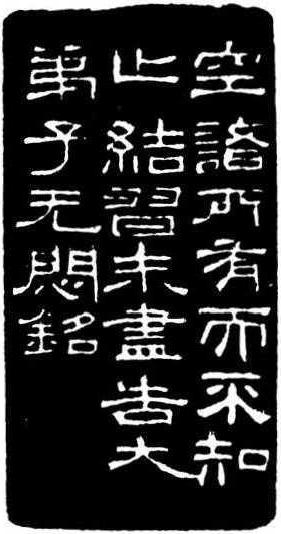 空諸所有而不知
止結習未盡告大
弟子无悶銘